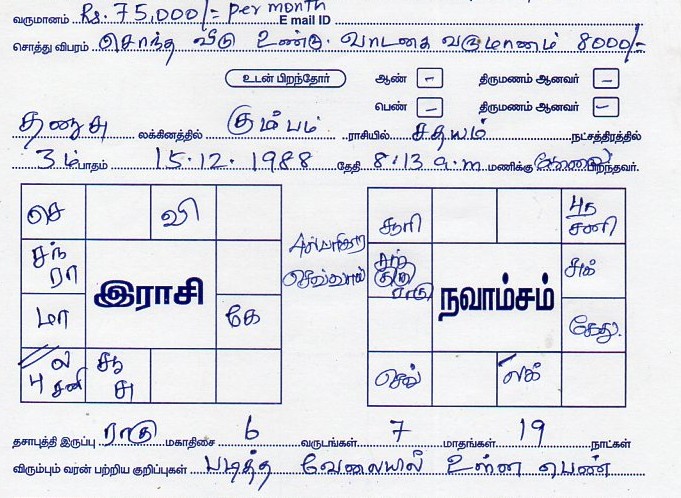 வருமானம் Rs. 75,000/= per month E mail ID
சொத்து விபரம் சொந்த வீடு உண்டு. வாடகை வருமானம் 8000/-
உடன் பிறந்தோர் ஆண் - திருமணம் ஆனவர் -
பெண் - திருமணம் ஆனவர் -
தனுசு லக்கினத்தில் கும்பம் ராசியில் சதயம் நட்சத்திரத்தில்
3ம் பாதம் 15.12.1988 தேதி 8:13 a.m மணிக்கு காலை பிறந்தவர்.
செ வி
சந் ரா
இராசி
மா கே
ல 4 சனி சூ சு
செவ்வாய்
சூரி சனி
சந் குரு ராகு
நவாம்சம்
சுக்
கேது
செவ் லக்
தசாபுத்தி இருப்பு ராகு மகாதிசை 6 வருடங்கள் 7 மாதங்கள் 19 நாட்கள்
விரும்பும் வரன் பற்றிய குறிப்புகள் படித்த வேலையில் உள்ள பெண்